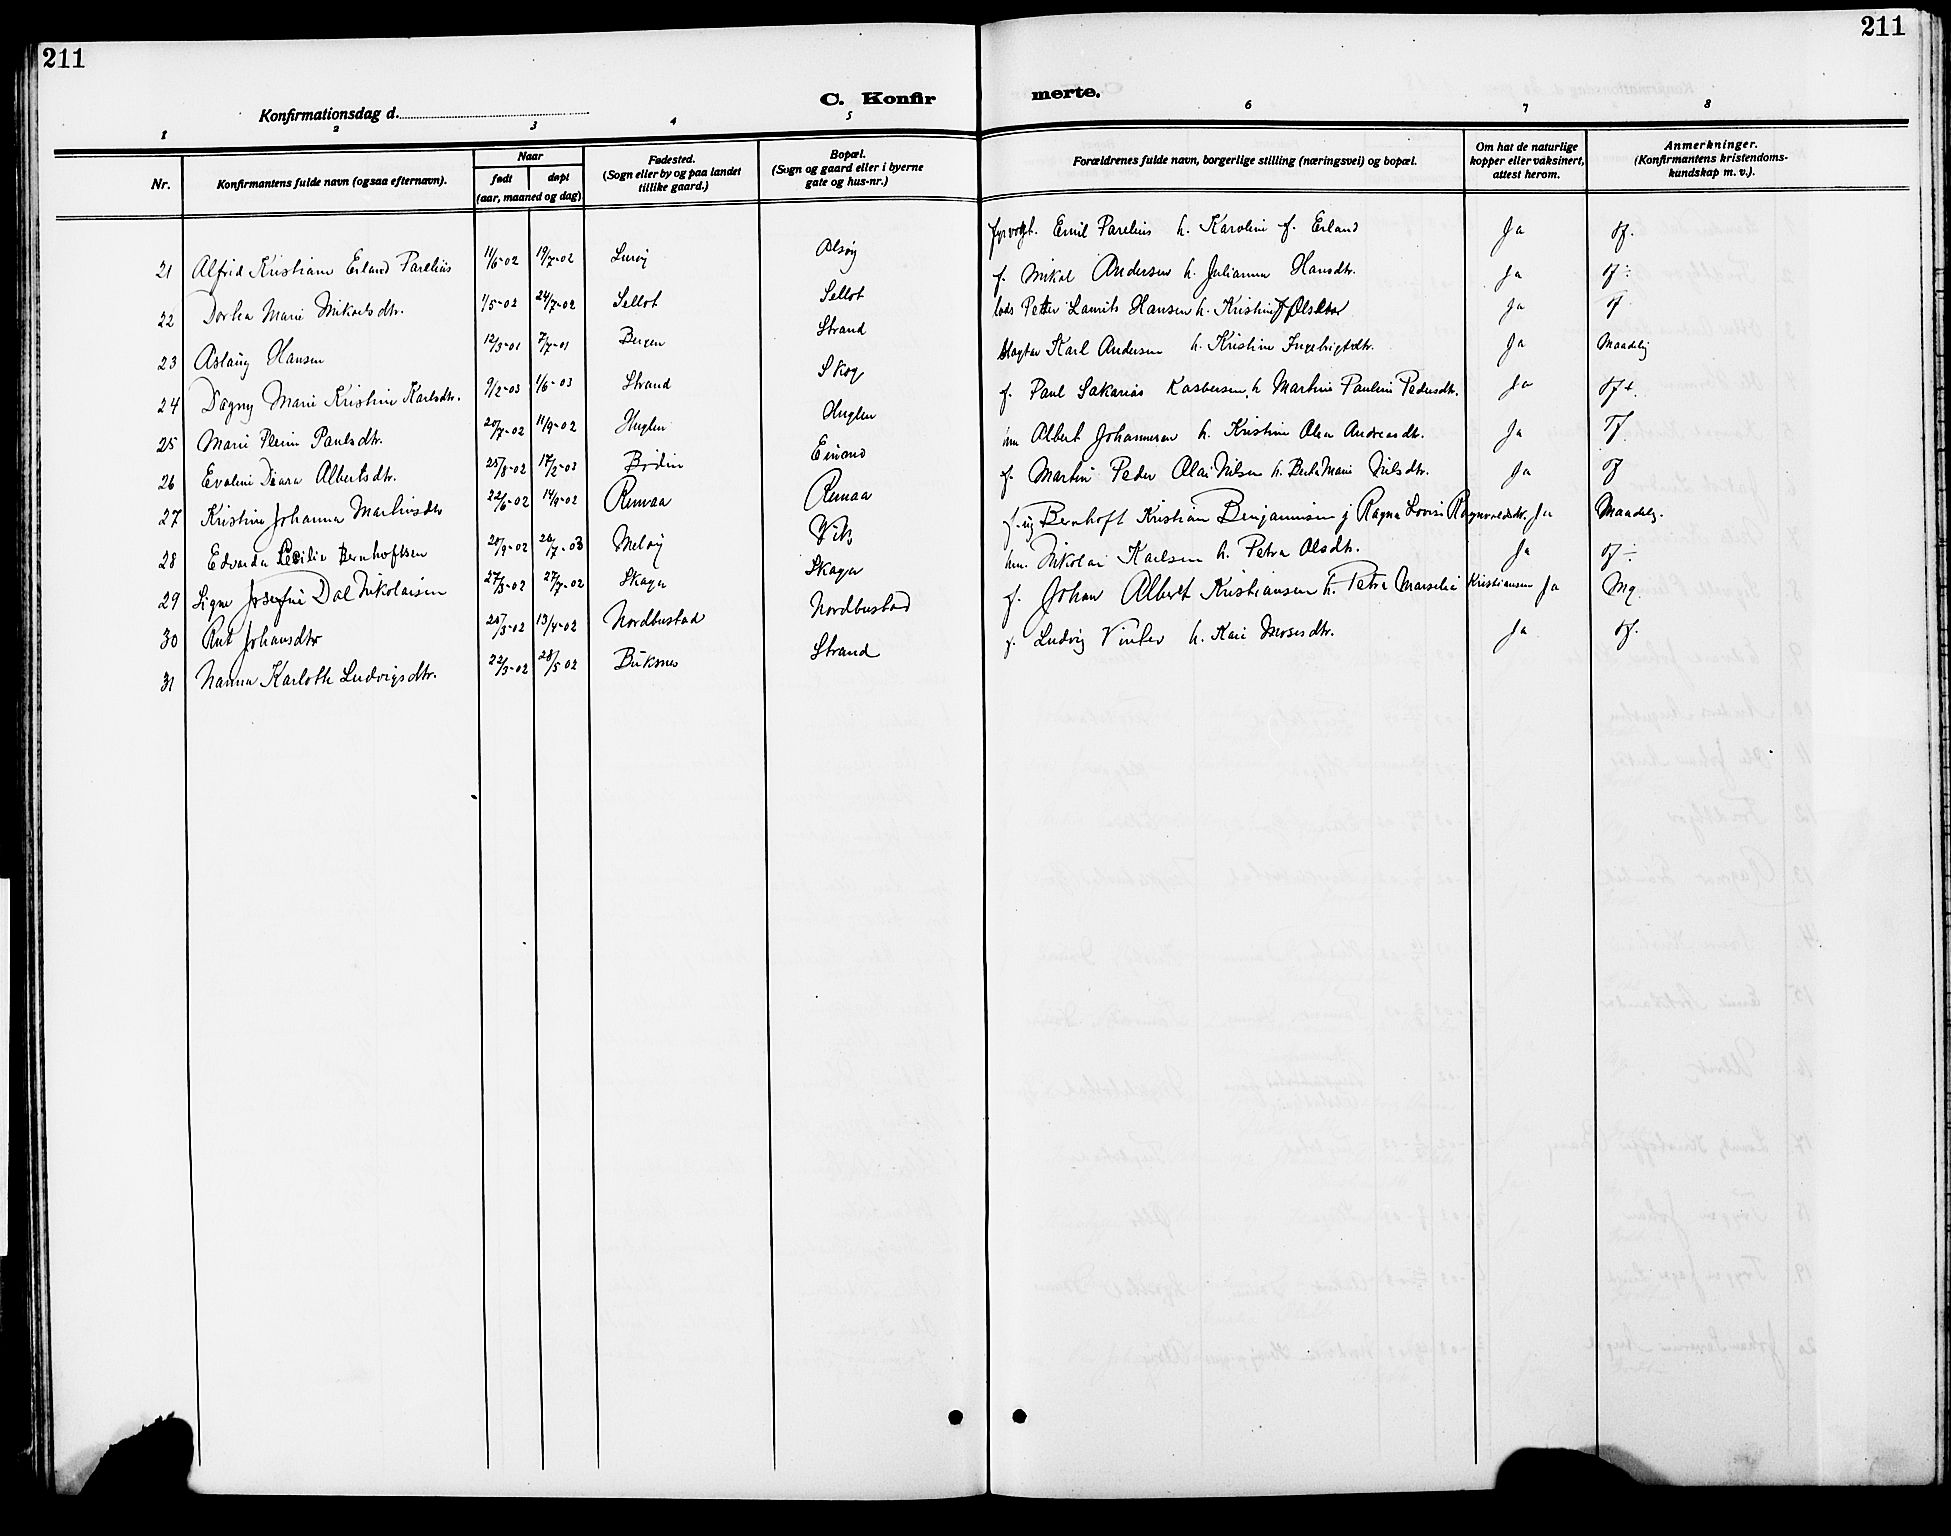 211
211
Konfirmationsdag d.
C. Konfir
merte.
1 2 3 4 5 6 7 8
Nr.
Konfirmantens fulde navn (ogsaa efternavn).
Naar
født
døpt
(aar, maaned og dag)
Fødested.
(Sogn eller by og paa landet
tillike gaard.)
Bopæl.
(Sogn og gaard eller i byerne
gate og hus-nr.)
Forældrenes fulde navn, borgerlige stilling (næringsvei) og bopæl.
Om hat de naturlige
kopper eller vaksinert,
attest herom.
Anmerkninger.
(Konfirmantens kristendoms-
kundskap m. v.).
21 Alfrid Kristiane Erland Parelius 11/6-02 19/7-02 Lurøy Alsøy fyrvogt. Emil Parelius h. Karoline f. Erland Ja
22 Dorhea Marie Mikalsdtr. 1/5-02 24/7-02 Selbot Selbot f. Mikal Andersen h. Julianna Hansdtr. Ja
23 Aslaug Hansen 12/3-01 7/7-01 Bergen Strand lods Petter Laurits Hansen h. Kristine Ja
24 Dagny Marie Kristine Karlsdtr. 9/2-03 1/6-03 Strand Skog Slagter Karl Andersen h. Kristine Ingebrigtsdtr. Ja Maadelig
25 Marie Paulsdtr. 20/7-02 11/9-02 Huglen Huglen f. Paul Sakarias Kasbersen h. Martine Pauline Pedersdtr. Ja
26 Evaline Albertsdtr. 25/8-02 17/2-03 Bodin Albert Johannesen h. Kristine Olea Andreasdtr. Ja
27 Kristine Johanna Martinsdtr 22/6-02 14/9-02 Remaa Remaa f. Martin Peder Nilsen h. Marie Nilsdtr. Ja
28 Edvarda Cecilie Bernhoftsen 20/9-02 26/7-03 Meløy Vik Bernhoft Kristian Benjaminsen Ragna Lovise Ragnvaldsdtr. Ja Maadelig.
29 Signe Josefine Dal Nikolaisen 27/3-02 27/7-02 Skagen Skagen hm. Nikolai Karlsen h. Petra Olsdtr. Ja
30 Rut Johansdtr 25/3-02 13/4-02 Nordbustad Nordbustad f. Johan Albert Kristiansen h. Petra Marselie Kristiansen Ja Mg.
31 Nanna Karloth Ludvigsdtr. 22/3-02 28/5 02 Buksnes Strand f. Ludvig Vinter h. Kari Mosesdtr. Ja